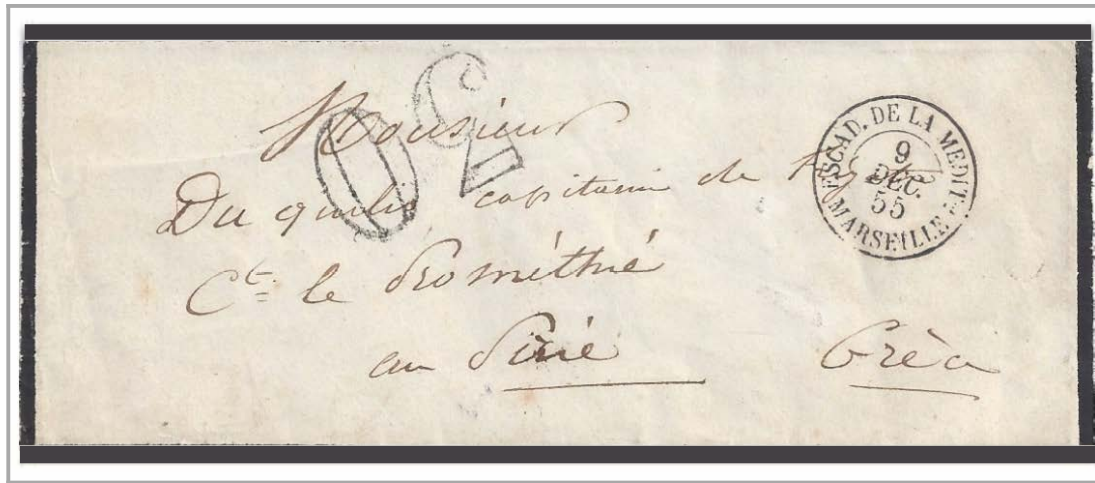 Monsieur
Du quilio capitaine de
Cte le Prométhée
au Pirée Grèce
ESCAD. DE LA MEDIT.
9
DÉC.
55
MARSEILLE